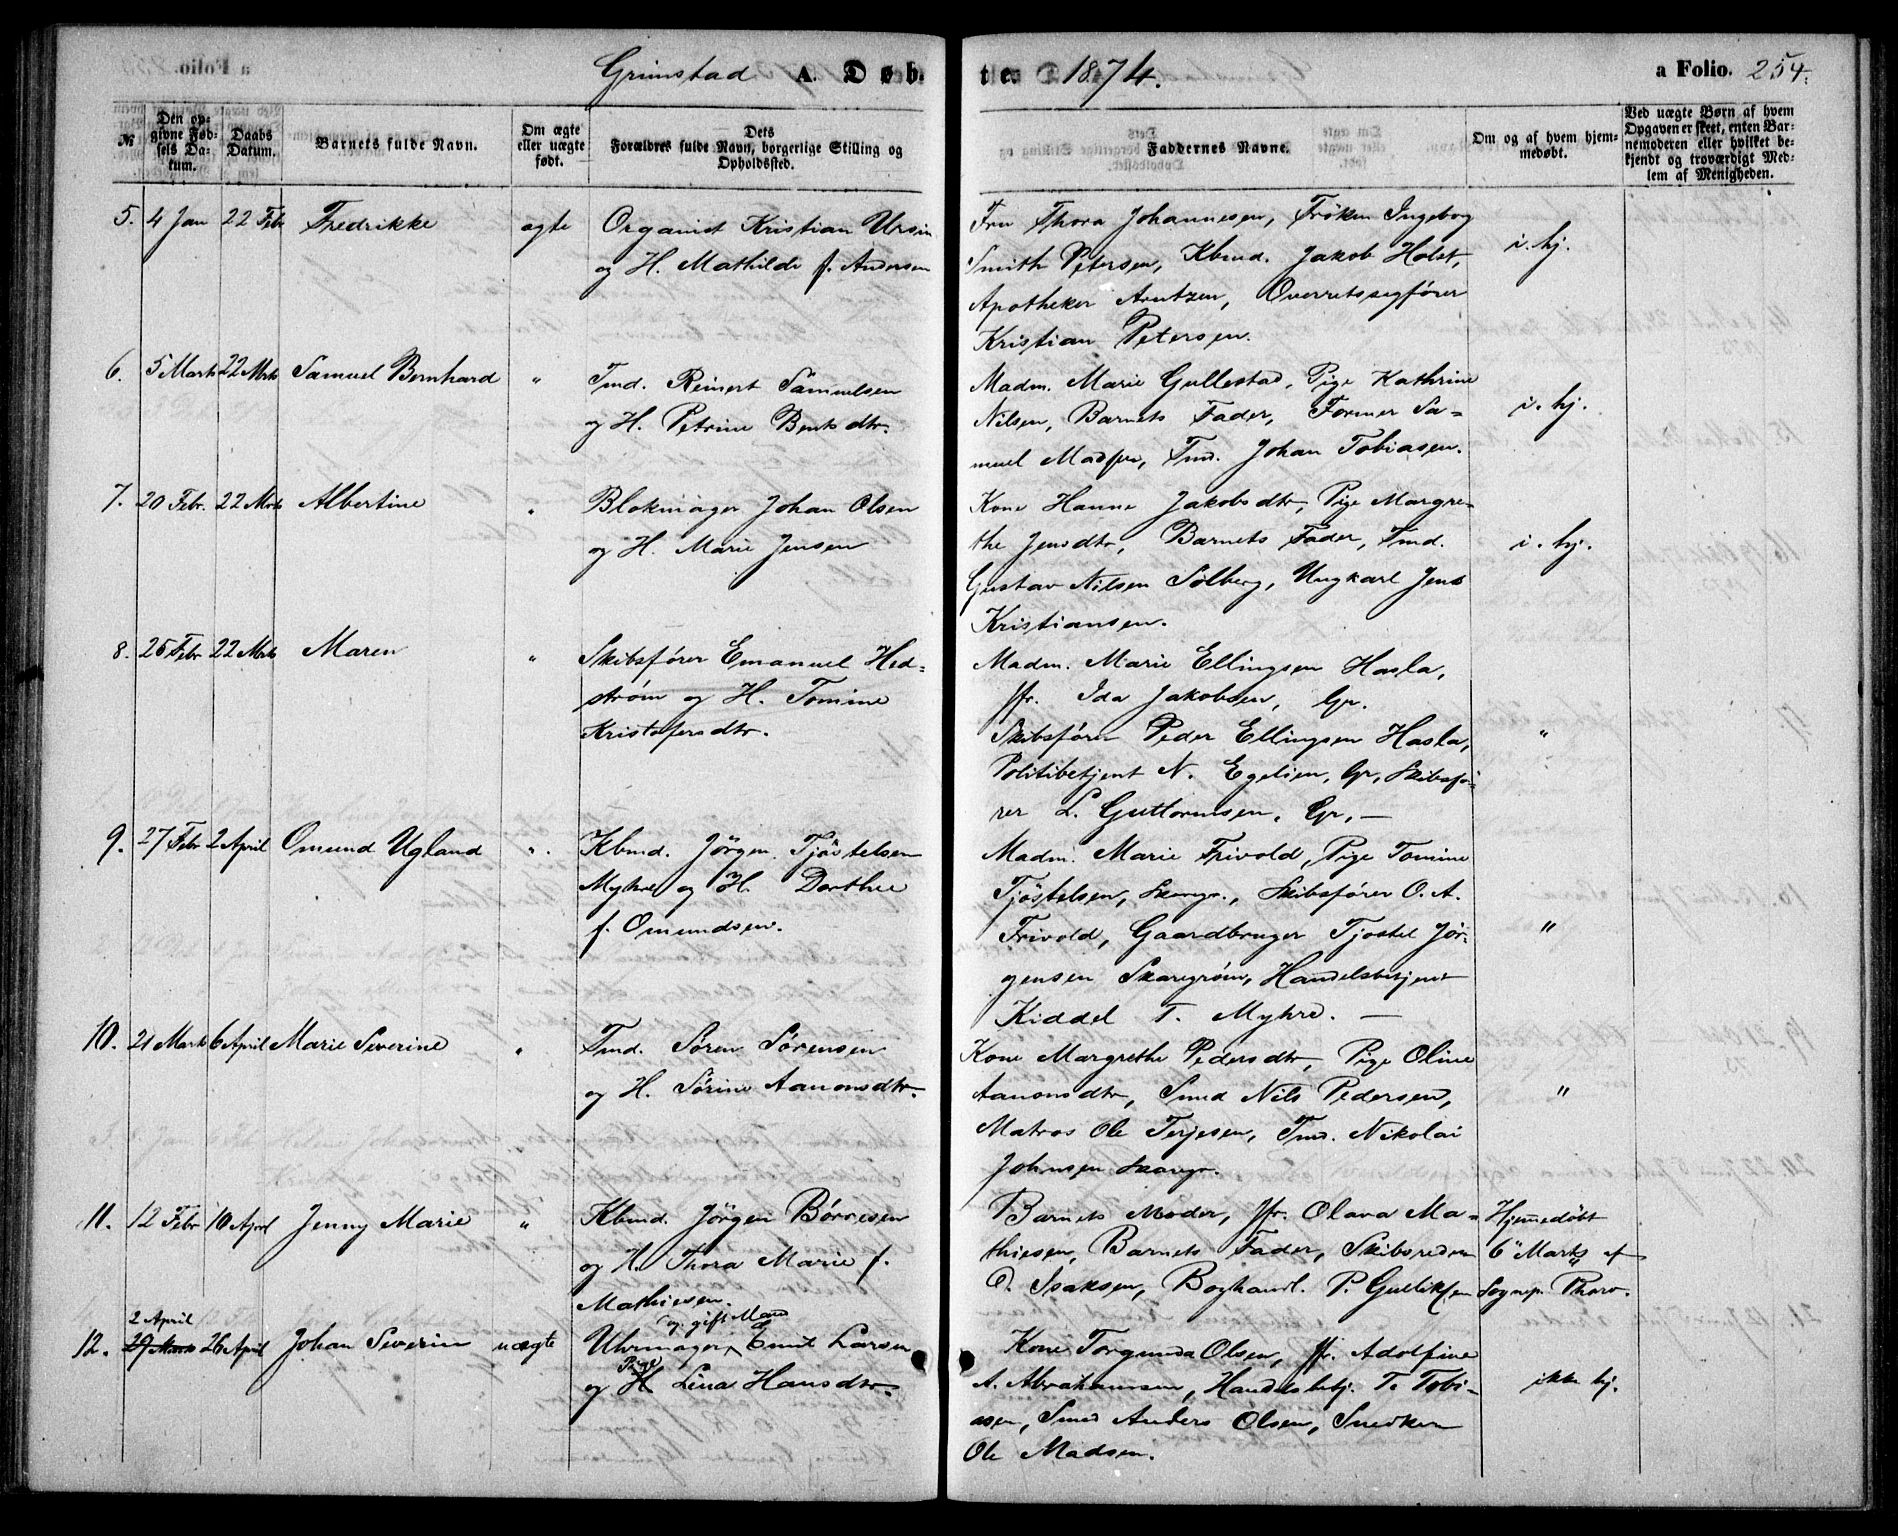 Grimstad A. Døbte. 1874. a Folio. 254.
№
Den opgivne Fødsels Datum.
Daabs Datum.
Barnets fulde Navn.
Om ægte eller uægte født.
Dets Forældres fulde Navn, borgerlige Stilling og Opholdssted.
Faddernes Navne.
Om og af hvem hjemmedøbt.
Ved uægte Børn af hvem Opgaven er skeet, enten Barnemoderen eller hvilket bekjendt og troværdigt Medlem af Menigheden.
5. 4 Jan 22 Febr Fredrikke ægte Organist Kristian Ursin
og H. Mathilde f. Andersen
Fru Thora Johannesen, Frøken Ingeborg
Smith Petersen, Kbmd. Jakob Holst,
Apotheker Arntzen, Overretssagfører
Kristian Petersen.
i. hj.
6. 5 Marts 22 Marts Samuel Bernhard " Tmd. Reinert Samuelsen
og H. Petrine Bentsdtr.
Madm. Marie Gullestad, Pige Kathrine
Nilsen, Barnets Fader, Former Sa-
muel Madsen, Tmd. Johan Tobiasen.
i. hj.
7. 20 Febr. 22 Marts Albertine " Blokmager Johan Olsen
og H. Marie Jensen
Kone Hanne Jakobsdtr, Pige Margre-
the Jensdtr, Barnets Fader, Tmd.
Gustav Nilsen Solberg, Ungkarl Jens
Kristiansen.
i. hj.
8. 25 Febr 22 Marts Maren " Skibsfører Emanuel Hed-
strøm og H. Tomine
Kristofersdtr.
Madm. Marie Ellingsen Hasla,
Jfr. Ida Jakobsen, Gr.
Skibsfører Peder Ellingsen Hasla,
Politibetjent N. Egelien, Gr, Skibsfø-
rer L. Guttormsen, Gr, —
"
9. 27 Febr 2 April Omund Ugland " Kbmd. Jørgen Tjøstelsen
Myhre og H. Dorthee
f. Omundsen.
Madm. Marie Frivold, Pige Tomine
Tjøstelsen, Skaregr., Skibsfører O. A.
Frivold, Gaardbruger Tjøstel Jør-
gensen Skaregrøm, Handelsbetjent
Kiddel T. Myhre. —
"
10. 21 Marts 6 April Marie Severine " Tmd. Søren Sørensen
og H. Sørine Aanonsdtr.
Kone Margrethe Pedersdtr, Pige Oline
Aanonsdtr, Smed Nils Pedersen,
Matros Ole Terjesen, Tmd. Nikolai
Johnsen Skaregr.
"
11. 12 Febr 10 April Jenny Marie " Kbmd. Jørgen Børresen
og H. Thora Marie f.
Mathiesen.
Barnets Moder, Jfr. Olava Ma-
thiesen, Barnets Fader, Skibsreder
O. Isaksen, Boghandl. P. Gulliksen
Hjemmedøbt
6 Marts af
Sognep. Thorv.
12. 2 April 29 Marts 26 April Johan Severin uægte Uhrmager og gift Mand Emil Larsen
og H Pige Lina Hansdtr.
Kone Torgunda Olsen, Jfr. Adolfine
A. Abrahamsen, Handelsbetj. T. Tobi-
asen, Smed Anders Olsen, Snedker
Ole Madsen.
ikke hj.